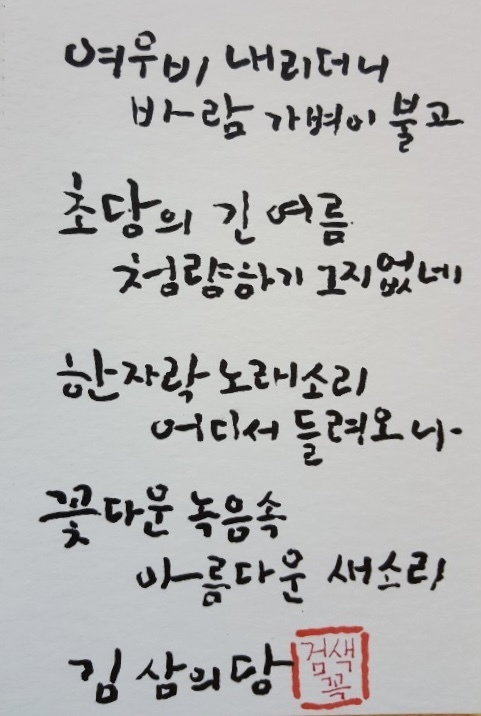 여우비 내리더니
바람 가벼이 불고
초당의 긴 여름
청량하기 그지없네
한자락 노래소리
어디서 들려오니
꽃다운 녹음속
아름다운 새소리
김삼의당
검색
꼭